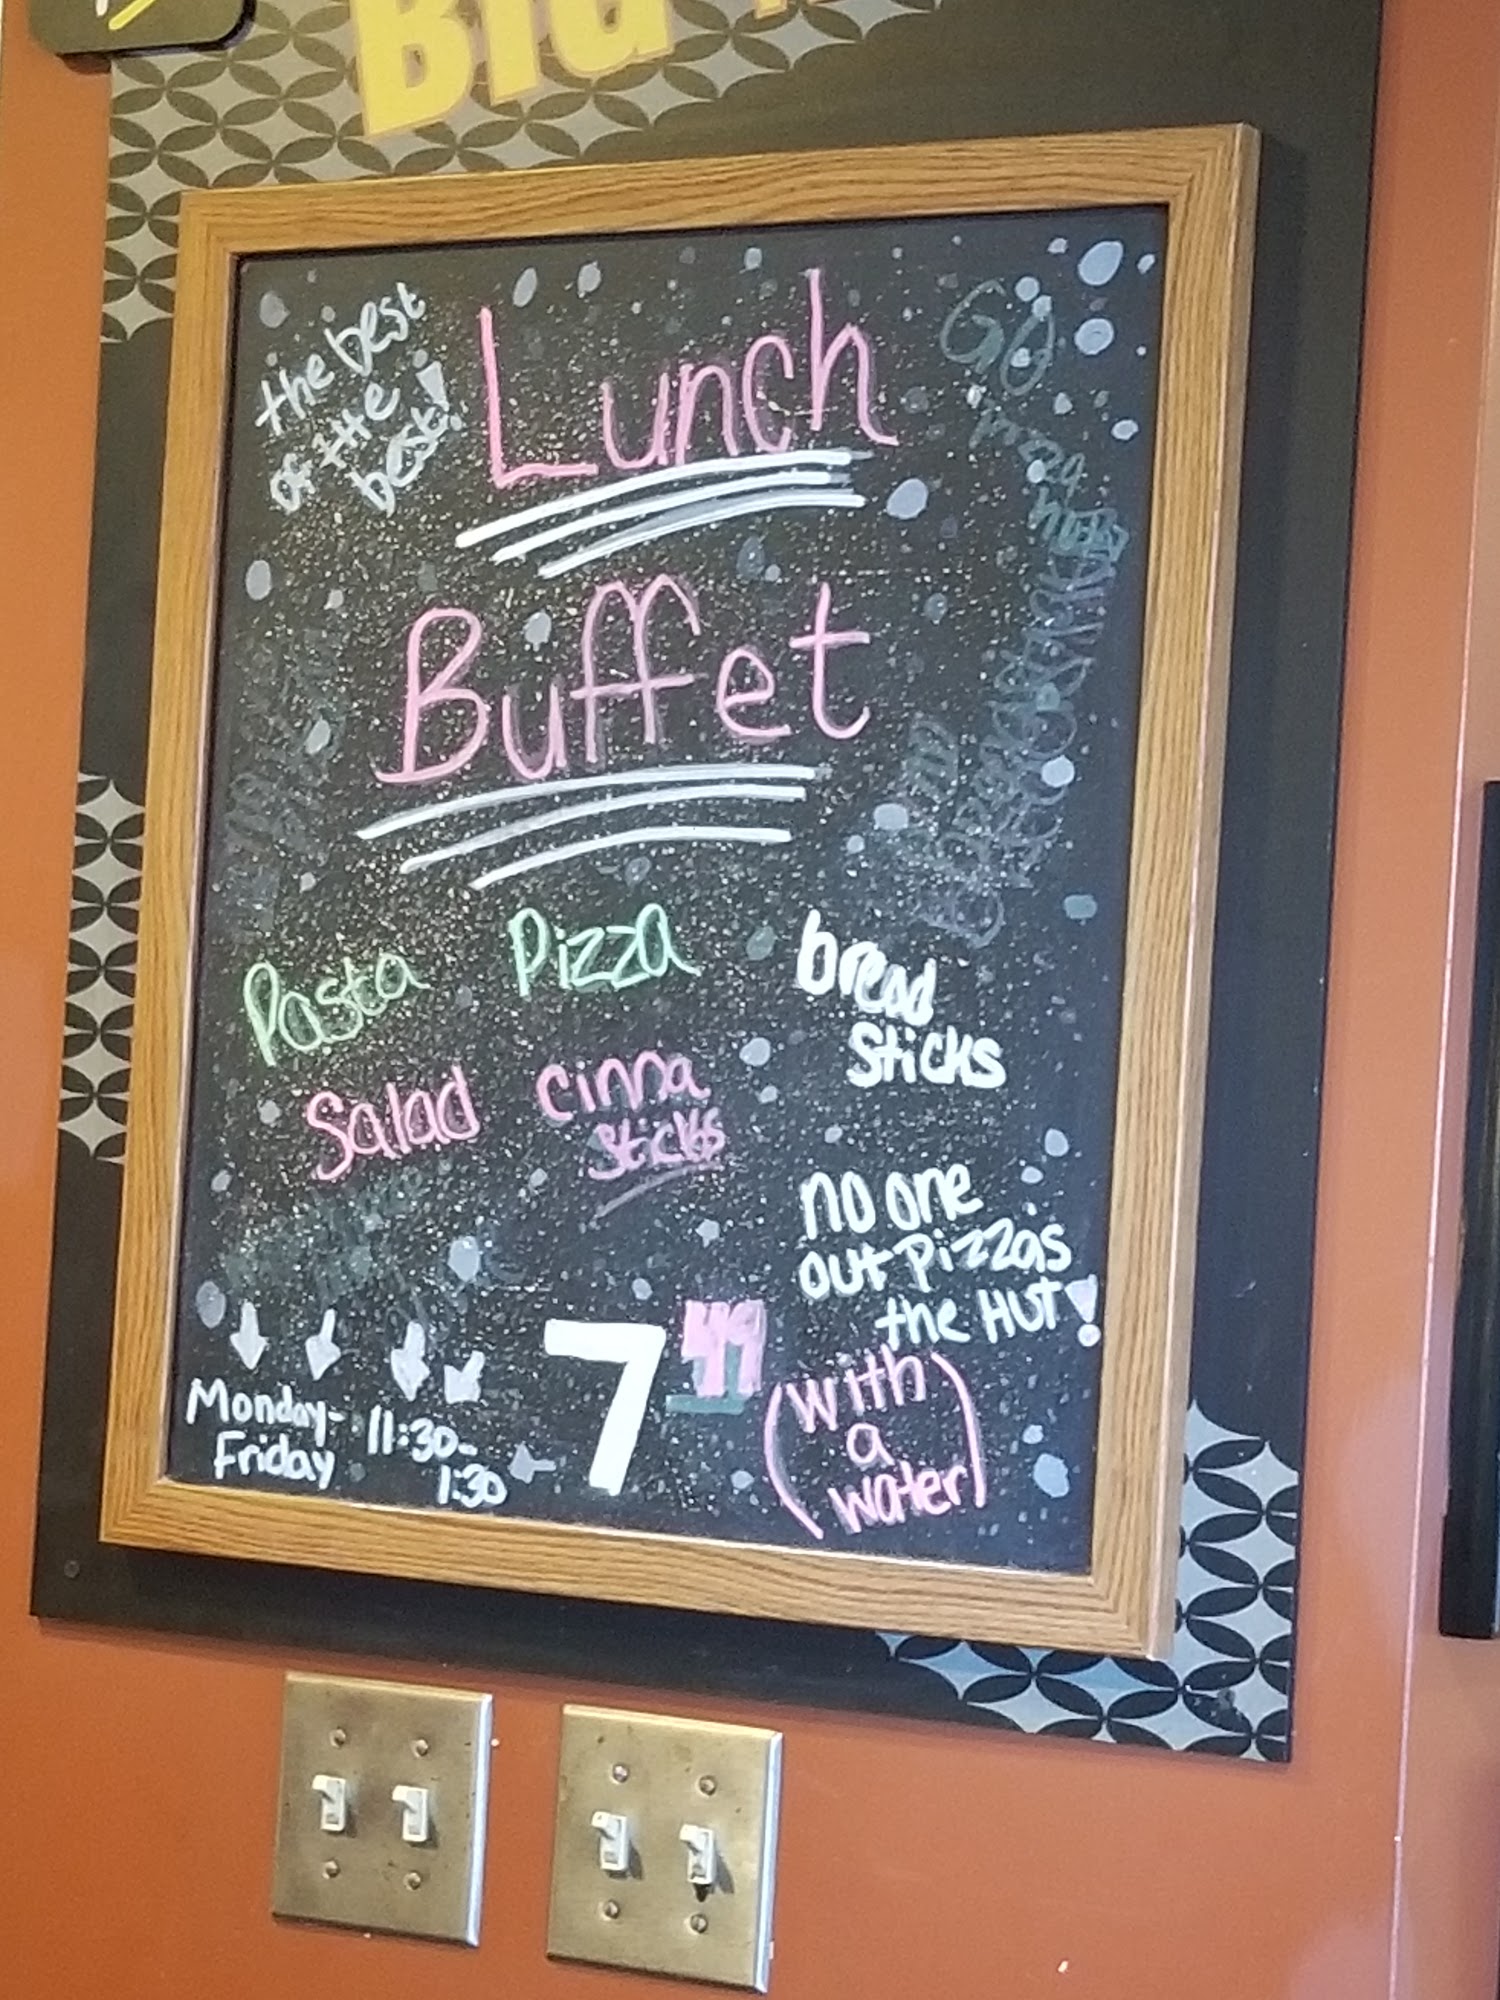 the best
of the
best!
Lunch
Buffet
GO
Pizza
Pasta
Pizza
bread
Sticks
Salad
cinna
Sticks
no one
out Pizzas
the HUT!
Monday-
Friday
11:30-
1:30
7 49
(with
a
water)